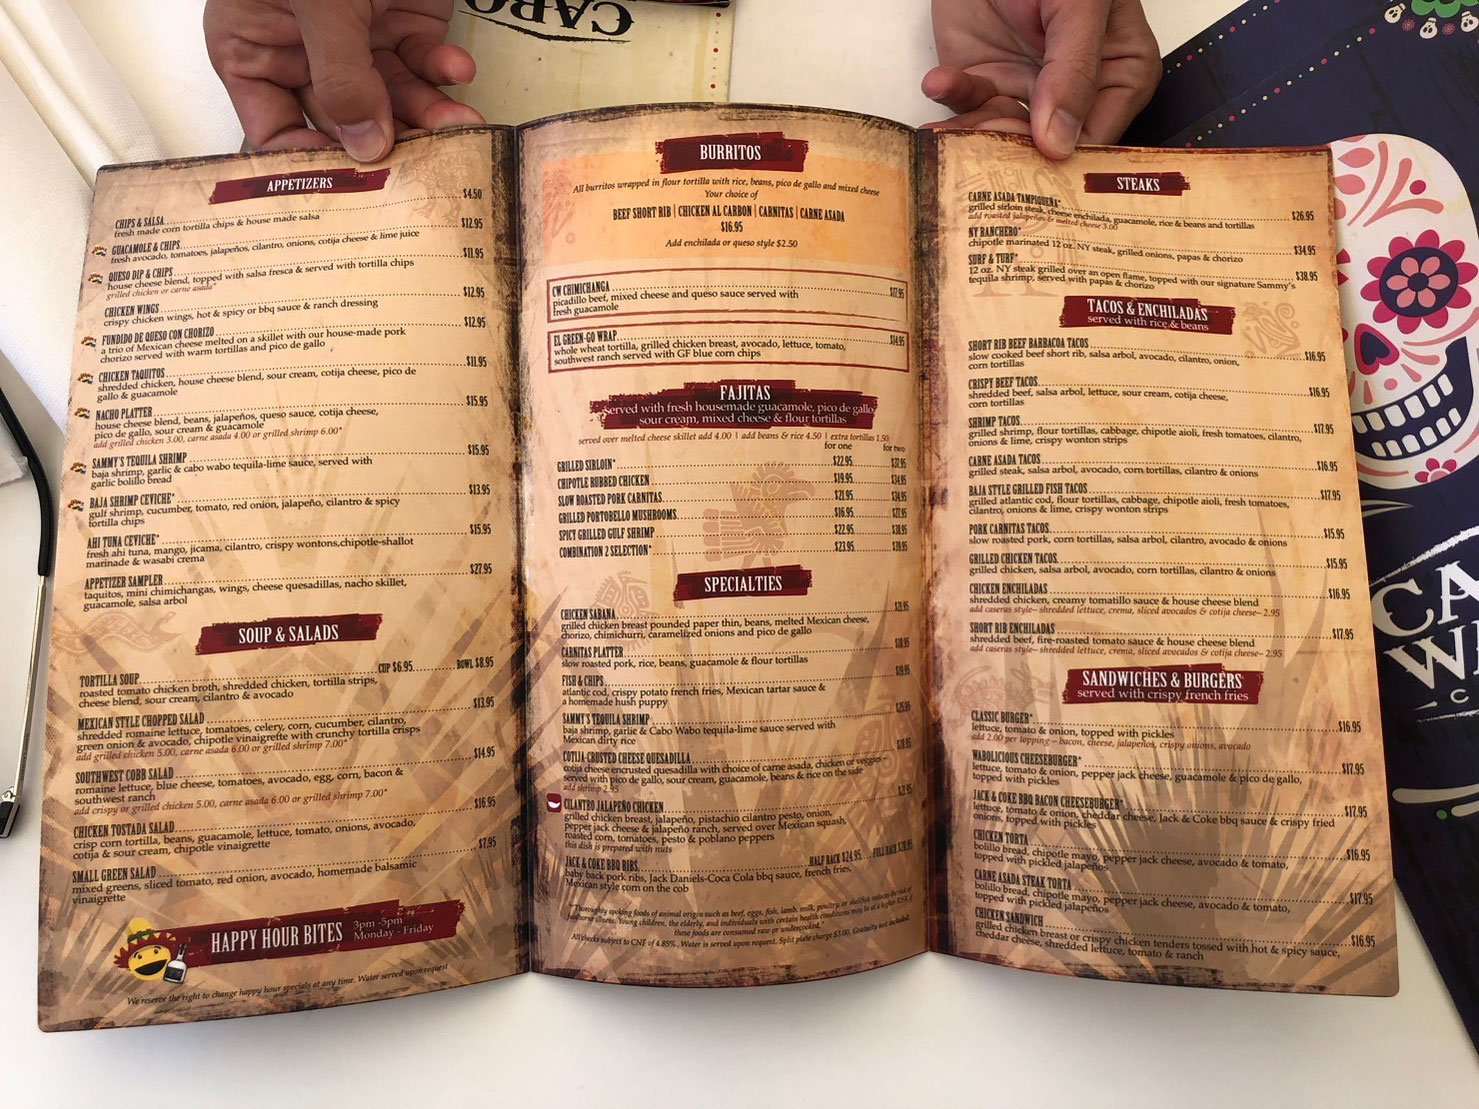 CABO
APPETIZERS
CHIPS & SALSA $4.50
fresh made corn tortilla chips & house made salsa
GUACAMOLE & CHIPS $12.95
fresh avocado, tomatoes, jalapeños, cilantro, onions, cotija cheese & lime juice
QUESO DIP & CHIPS $11.95
house cheese blend, topped with salsa fresca & served with tortilla chips
grilled chicken or carne asada*
CHICKEN WINGS $12.95
crispy chicken wings, hot & spicy or bbq sauce & ranch dressing
FUNDIDO DE QUESO CON CHORIZO $12.95
a trio of Mexican cheese melted on a skillet with our house-made pork
chorizo served with warm tortillas and pico de gallo
CHICKEN TAQUITOS $11.95
shredded chicken, house cheese blend, sour cream, cotija cheese, pico de
gallo & guacamole
NACHO PLATTER $15.95
house cheese blend, beans, jalapeños, queso sauce, cotija cheese,
pico de gallo, sour cream & guacamole
add grilled chicken 3.00, carne asada 4.00 or grilled shrimp 6.00*
SAMMY'S TEQUILA SHRIMP $15.95
baja shrimp, garlic & cabo wabo tequila-lime sauce, served with
garlic bolillo bread
BAJA SHRIMP CEVICHE* $13.95
gulf shrimp, cucumber, tomato, red onion, jalapeño, cilantro & spicy
tortilla chips
AHI TUNA CEVICHE* $15.95
fresh ahi tuna, mango, jicama, cilantro, crispy wontons, chipotle-shallot
marinade & wasabi crema
APPETIZER SAMPLER $27.95
taquitos, mini chimichangas, wings, cheese quesadillas, nacho skillet,
guacamole, salsa arbol
SOUP & SALADS
TORTILLA SOUP CUP $6.95 BOWL $8.95
roasted tomato chicken broth, shredded chicken, tortilla strips,
cheese blend, sour cream, cilantro & avocado
MEXICAN STYLE CHOPPED SALAD $13.95
shredded romaine lettuce, tomatoes, celery, corn, cucumber, cilantro,
green onion & avocado, chipotle vinaigrette with crunchy tortilla crisps
add grilled chicken 5.00, carne asada 6.00 or grilled shrimp 7.00*
SOUTHWEST COBB SALAD $14.95
romaine lettuce, blue cheese, tomatoes, avocado, egg, corn, bacon &
southwest ranch
add crispy or grilled chicken 5.00, carne asada 6.00 or grilled shrimp 7.00*
CHICKEN TOSTADA SALAD $16.95
crisp corn tortilla, beans, guacamole, lettuce, tomato, onions, avocado,
cotija & sour cream, chipotle vinaigrette
SMALL GREEN SALAD $7.95
mixed greens, sliced tomato, red onion, avocado, homemade balsamic
vinaigrette
HAPPY HOUR BITES 3pm -5pm
Monday - Friday
We reserve the right to change happy hour specials at any time. Water served upon request
BURRITOS
All burritos wrapped in flour tortilla with rice, beans, pico de gallo and mixed cheese
Your choice of
BEEF SHORT RIB | CHICKEN AL CARBON | CARNITAS | CARNE ASADA
$16.95
Add enchilada or queso style $2.50
CW CHIMICHANGA $17.95
picadillo beef, mixed cheese and queso sauce served with
fresh guacamole
EL GREEN-GO WRAP $14.95
whole wheat tortilla, grilled chicken breast, avocado, lettuce, tomato,
southwest ranch served with GF blue corn chips
FAJITAS
served with fresh housemade guacamole, pico de gallo,
sour cream, mixed cheese & flour tortillas
served over melted cheese skillet add 4.00 | add beans & rice 4.50 | extra tortillas 1.50
for one for two
GRILLED SIRLOIN* $22.95 $37.95
CHIPOTLE RUBBED CHICKEN $19.95 $34.95
SLOW ROASTED PORK CARNITAS $21.95 $34.95
GRILLED PORTOBELLO MUSHROOMS $16.95 $27.95
SPICY GRILLED GULF SHRIMP $22.95 $38.95
COMBINATION 2 SELECTION* $23.95 $39.95
SPECIALTIES
CHICKEN SABANA $21.95
grilled chicken breast pounded paper thin, beans, melted Mexican cheese,
chorizo, chimichurri, caramelized onions and pico de gallo
CARNITAS PLATTER $18.95
slow roasted pork, rice, beans, guacamole & flour tortillas
FISH & CHIPS $19.95
atlantic cod, crispy potato french fries, Mexican tartar sauce &
a homemade hush puppy
SAMMY'S TEQUILA SHRIMP
baja shrimp, garlic & Cabo Wabo tequila-lime sauce served with
Mexican dirty rice
COTIJA CRUSTED CHEESE QUESADILLA
cotija cheese encrusted quesadilla with choice of carne asada, chicken or veggies
served with pico de gallo, sour cream, guacamole, beans & rice on the side
add shrimp 2.95
CILANTRO JALAPEÑO CHICKEN
grilled chicken breast, jalapeño, pistachio cilantro pesto, onion,
pepper jack cheese & jalapeño ranch, served over Mexican squash,
roasted corn, tomatoes, pesto & poblano peppers
this dish is prepared with nuts
JACK & COKE BBQ RIBS HALF RACK $24.95 FULL RACK
baby back pork ribs, Jack Daniels-Coca Cola bbq sauce, french fries,
Mexican style corn on the cob
*Thoroughly cooking foods of animal origin such as beef, eggs, fish, lamb, milk, poultry, or shellfish reduces the risk of
foodborne illness. Young children, the elderly, and individuals with certain health conditions may be at a higher risk if
these foods are consumed raw or undercooked.*
All checks subject to CNF of 4.85%. Water is served upon request. Split plate charge $3.00. Gratuity not included.
STEAKS
CARNE ASADA TAMPIQUEÑA* $26.95
grilled sirloin steak, cheese enchilada, guacamole, rice & beans and tortillas
add roasted jalapeños & melted cheese 3.00
NY RANCHERO* $34.95
chipotle marinated 12 oz. NY steak, grilled onions, papas & chorizo
SURF & TURF* $38.95
12 oz. NY steak grilled over an open flame, topped with our signature Sammy's
tequila shrimp, served with papas & chorizo
TACOS & ENCHILADAS
served with rice & beans
SHORT RIB BEEF BARBACOA TACOS $16.95
slow cooked beef short rib, salsa arbol, avocado, cilantro, onion,
corn tortillas
CRISPY BEEF TACOS $16.95
shredded beef, salsa arbol, lettuce, sour cream, cotija cheese,
corn tortillas
SHRIMP TACOS $17.95
grilled shrimp, flour tortillas, cabbage, chipotle aioli, fresh tomatoes, cilantro,
onions & lime, crispy wonton strips
CARNE ASADA TACOS $16.95
grilled steak, salsa arbol, avocado, corn tortillas, cilantro & onions
BAJA STYLE GRILLED FISH TACOS $17.95
grilled atlantic cod, flour tortillas, cabbage, chipotle aioli, fresh tomatoes,
cilantro, onions & lime, crispy wonton strips
PORK CARNITAS TACOS $15.95
slow roasted pork, corn tortillas, salsa arbol, cilantro, avocado & onions
GRILLED CHICKEN TACOS $15.95
grilled chicken, salsa arbol, avocado, corn tortillas, cilantro & onions
CHICKEN ENCHILADAS $16.95
shredded chicken, creamy tomatillo sauce & house cheese blend
add caseras style– shredded lettuce, crema, sliced avocados & cotija cheese– 2.95
SHORT RIB ENCHILADAS $17.95
shredded beef, fire-roasted tomato sauce & house cheese blend
add caseras style– shredded lettuce, crema, sliced avocados & cotija cheese– 2.95
SANDWICHES & BURGERS
served with crispy french fries
CLASSIC BURGER* $16.95
lettuce, tomato & onion, topped with pickles
add 2.00 per topping – bacon, cheese, jalapeños, crispy onions, avocado
WABOLICIOUS CHEESEBURGER* $17.95
lettuce, tomato & onion, pepper jack cheese, guacamole & pico de gallo,
topped with pickles
JACK & COKE BBQ BACON CHEESEBURGER* $17.95
lettuce, tomato & onion, cheddar cheese, Jack & Coke bbq sauce & crispy fried
onions, topped with pickles
CHICKEN TORTA $16.95
bolillo bread, chipotle mayo, pepper jack cheese, avocado & tomato,
topped with pickled jalapeños
CARNE ASADA STEAK TORTA $17.95
bolillo bread, chipotle mayo, pepper jack cheese, avocado & tomato,
topped with pickled jalapeños
CHICKEN SANDWICH $16.95
grilled chicken breast or crispy chicken tenders tossed with hot & spicy sauce,
cheddar cheese, shredded lettuce, tomato & ranch